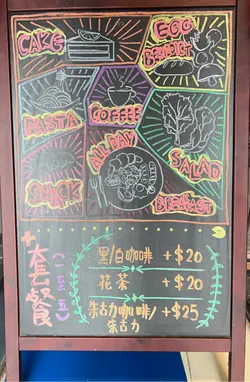 CAKE
EGG
BENEDICT
PASTA
COFFEE
ALL DAY
SALAD
SNACK
BREAKFAST
+套餐
(一至五)
黑/白咖啡 +$20
花茶 +$20
朱古力咖啡/ +$25
朱古力